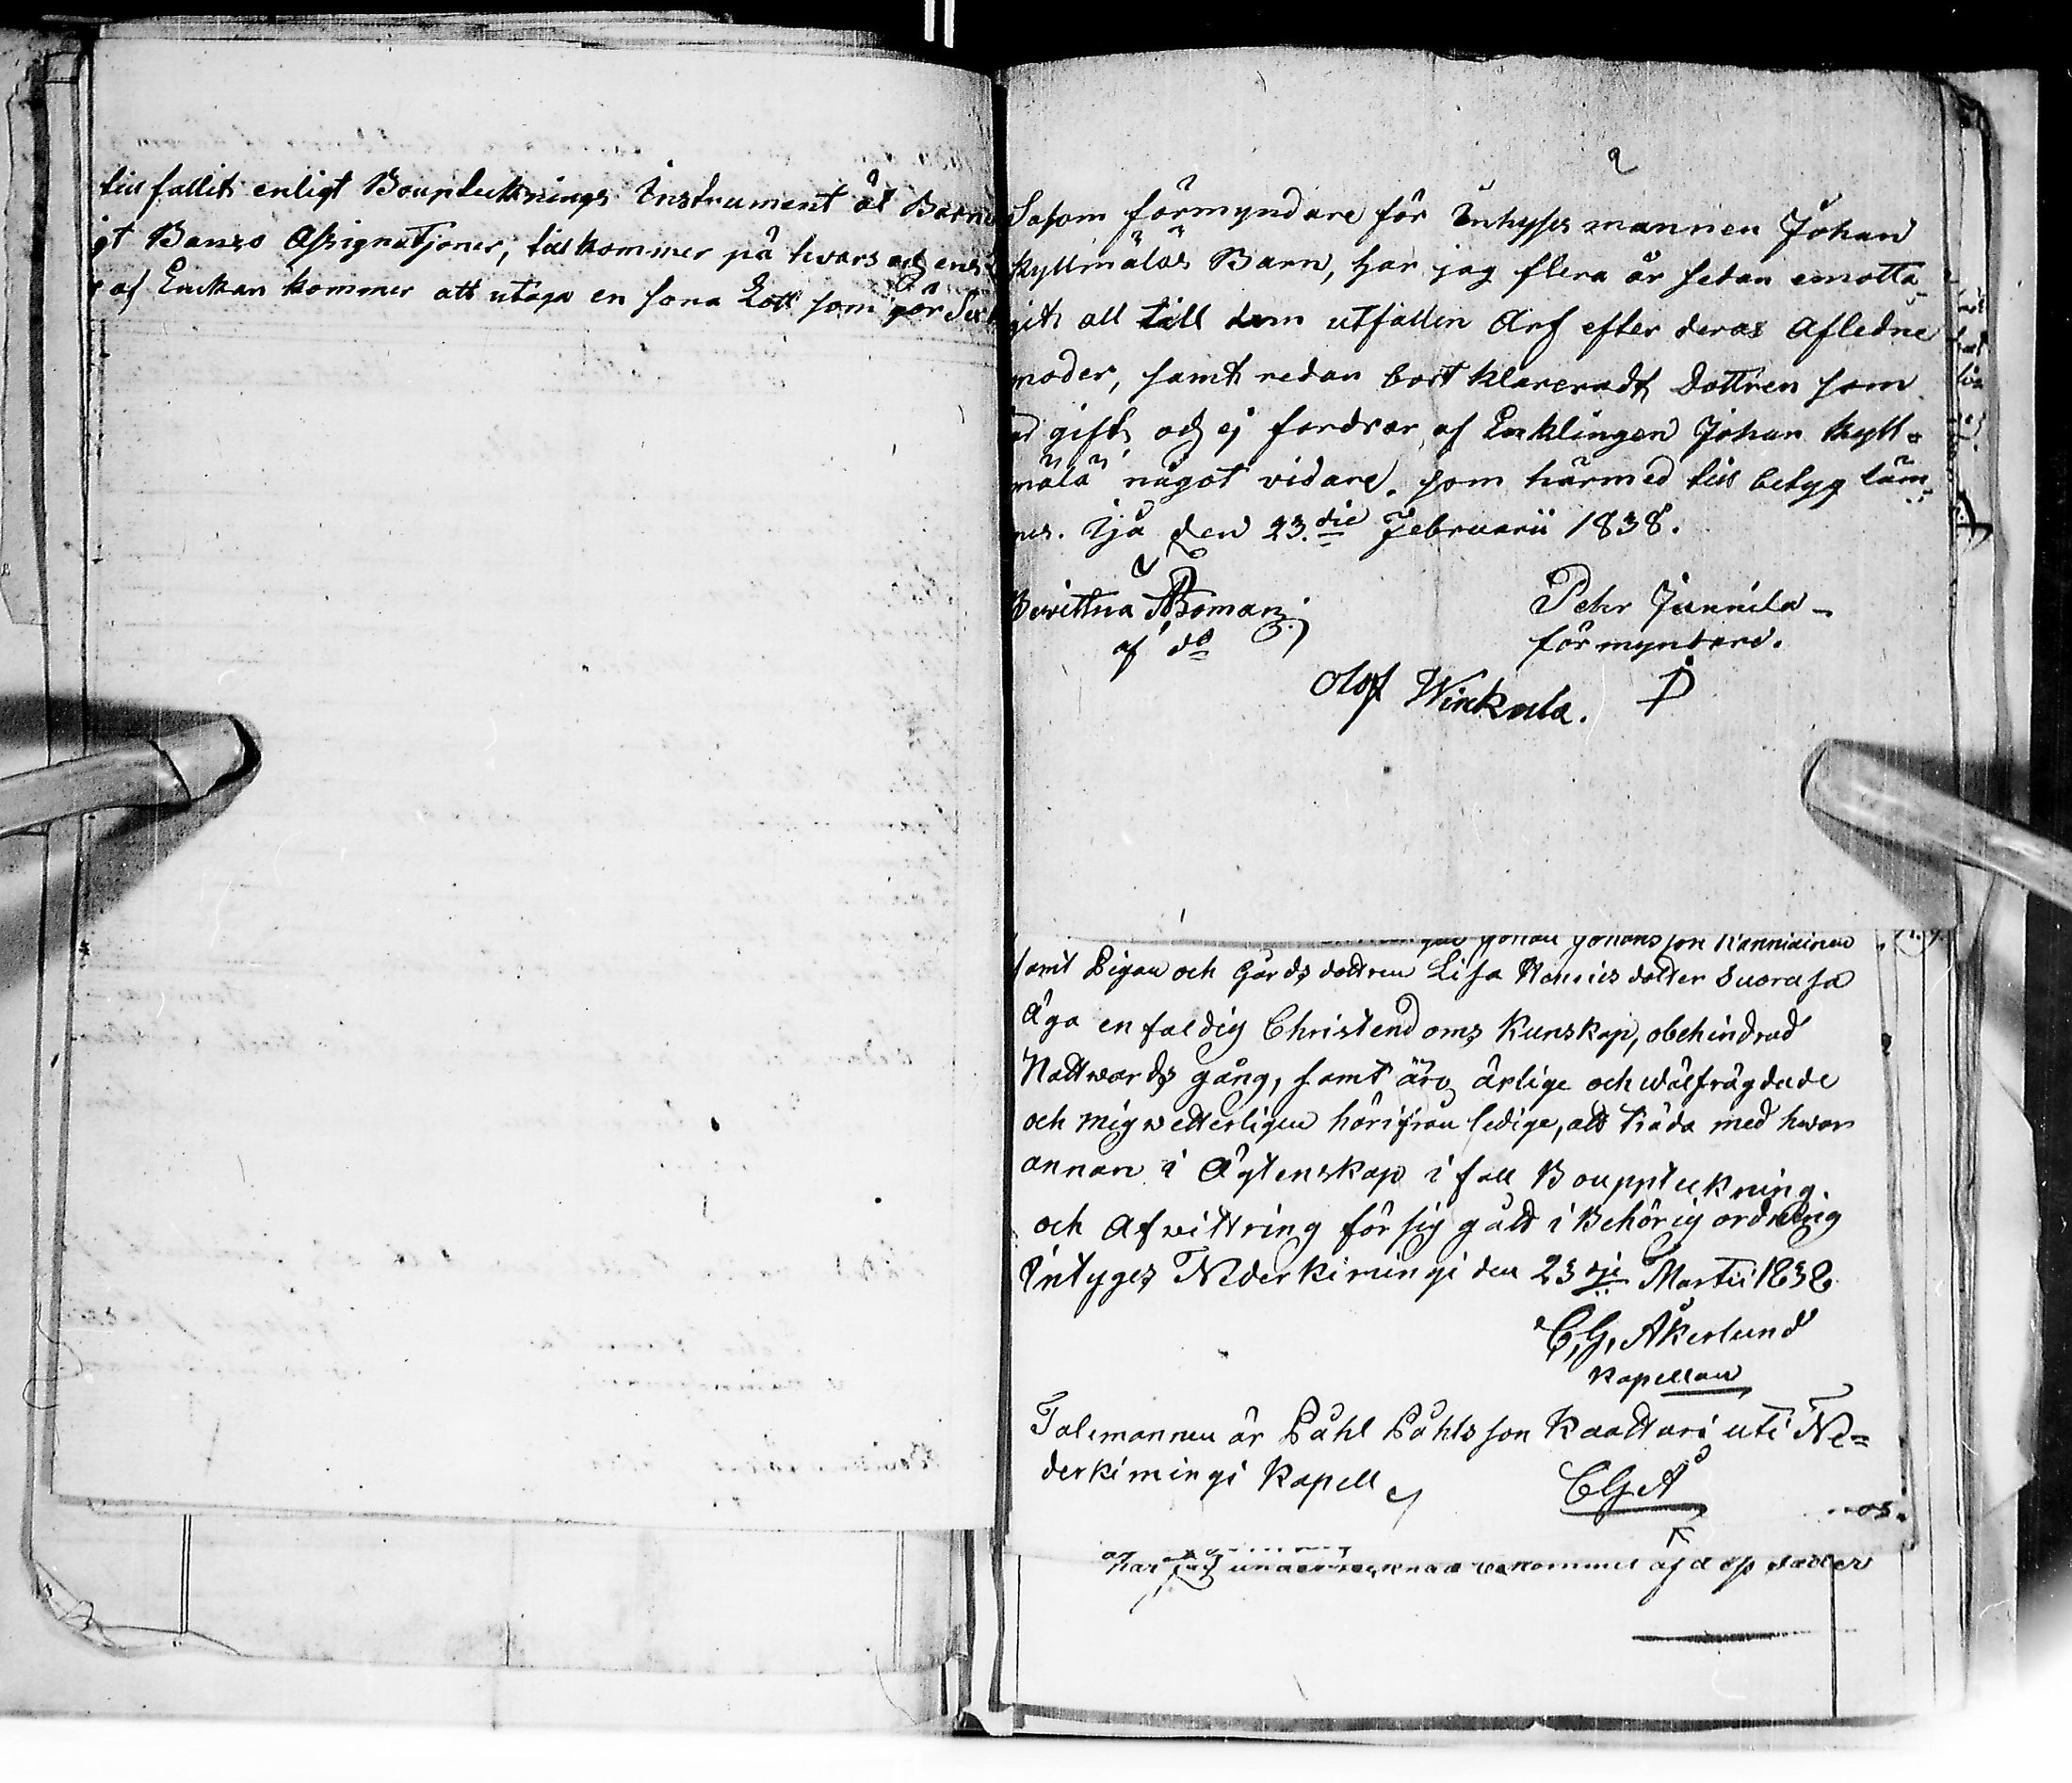 till fallit enligt Bouptecknings Instrument åt Barne
gt Banco Assignatjoner, till kommer på hwars och ens
af Enckan kommer att utaga en sona Lott som gör Sex
2
Såsom förmyndare för Inhyses mannen Johan
Kyllmäläs Barn, har jag flera år sedan emotta
git all till dem utfallen Arf efter deras Afledne
moder, samt redan bort klareradt Dottren som
gift, och ej fordrar af Enklingen Johan Kyll=
mälä något vidare, som härmed till betyg läm
nes. Ijå den 23.die Februarii 1838.
Bewittna ABoman
af do
Petter Jannila
förmyndare.
Olof Winkala.
Johan Johansson Kanniainen
samt Pigan och Gårds dottren Lisa Hansdotter Suorasa
äga enfaldig Christendoms Kunskap, obehindrad
Nattwards gång, samt äro ärlige och wälfrägdade
och mig wetterligen härifrån ledige, att träda med hwar
annan i Ägtenskap i fall Bouppteckning
och Afwittring för sig gått i Behörig ordning
Intyges Nederkimingi den 23 dje Martii 1838
C, G, Åkerlund
Kapellan
Talemannen är Påhl Påhlsson Kaattari uti Ne=
derkimingi Kapell
CGÅ
har jag undertecknad bekommit af